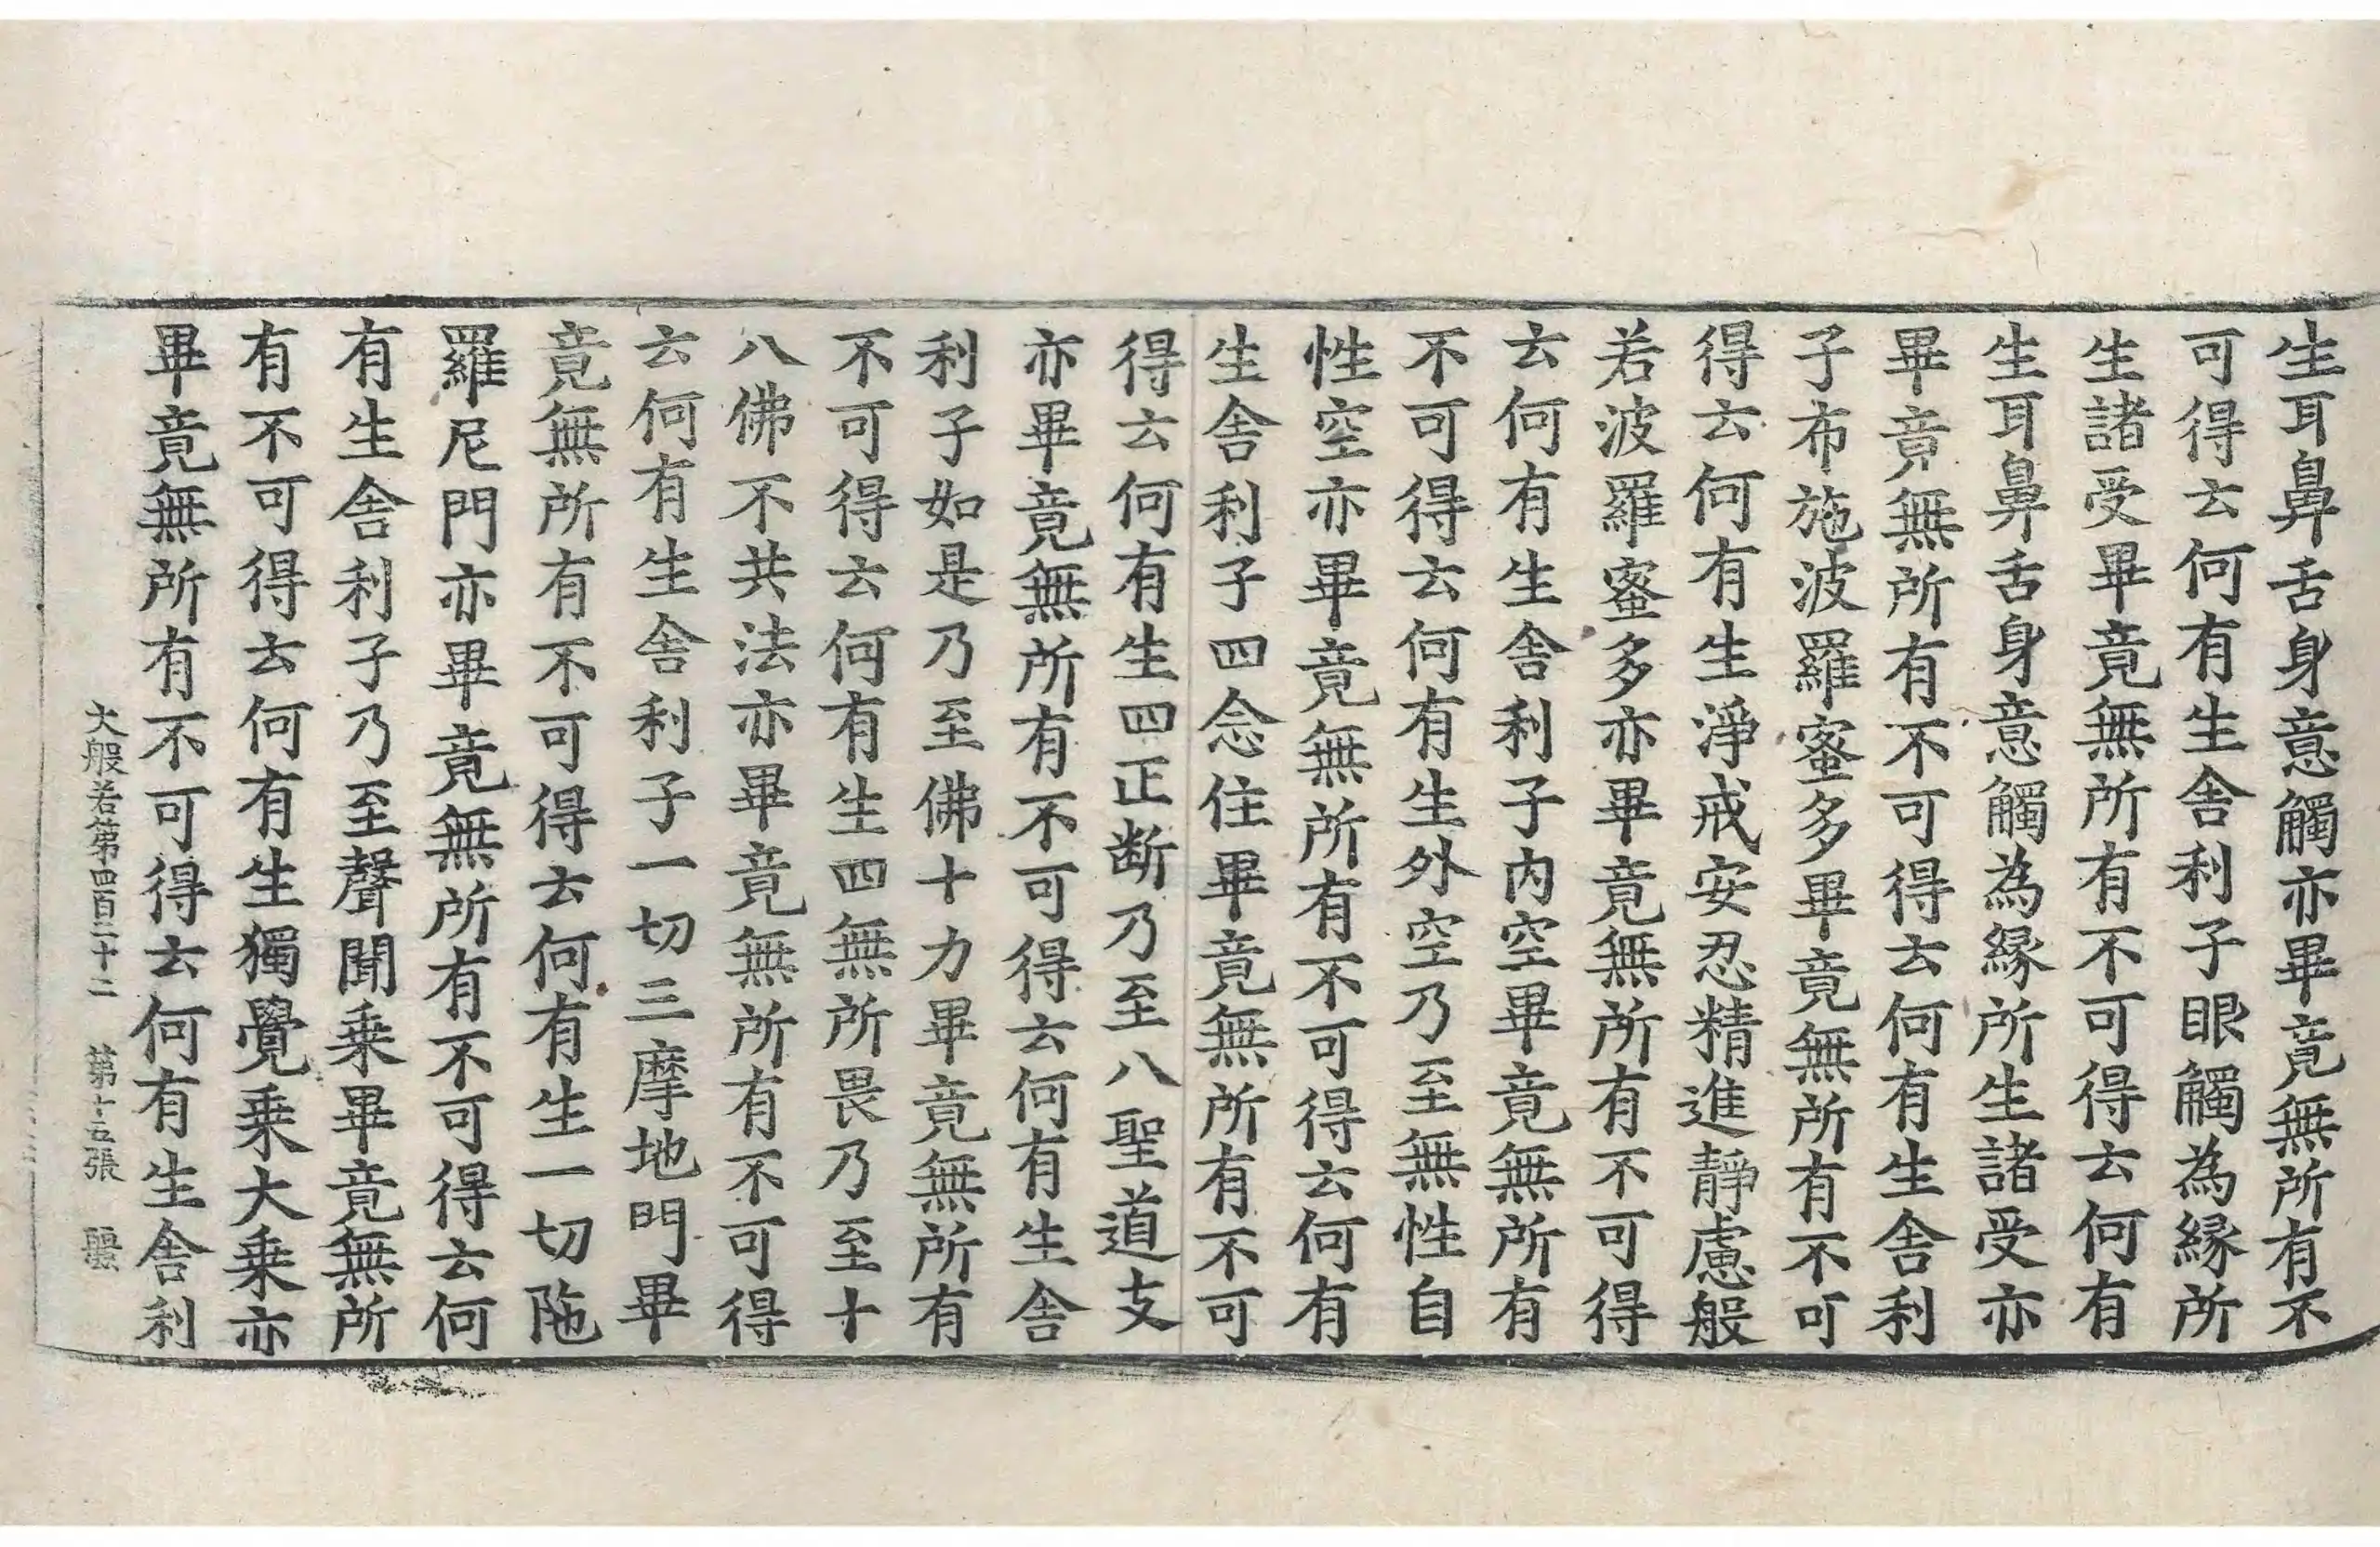 生耳鼻舌身意觸亦畢竟無所有不
可得云何有生舎利子眼觸為縁所
生諸受畢竟無所有不可得云何有
生耳鼻舌身意觸為縁所生諸受亦
畢竟無所有不可得云何有生舎利
子布施波羅蜜多畢竟無所有不可
得云何有生淨戒安忍精進靜慮般
若波羅蜜多亦畢竟無所有不可得
云何有生舎利子内空畢竟無所有
不可得云何有生外空乃至無性自
性空亦畢竟無所有不可得云何有
生舎利子四念住畢竟無所有不可
得云何有生四正断乃至八聖道支
亦畢竟無所有不可得云何有生舎
利子如是乃至佛十力畢竟無所有
不可得云何有生四無所畏乃至十
八佛不共法亦畢竟無所有不可得
云何有生舎利子一切三摩地門畢
竟無所有不可得云何有生一切陁
羅尼門亦畢竟無所有不可得云何
有生舎利子乃至聲聞乗畢竟無所
有不可得云何有生獨覺乗大乗亦
畢竟無所有不可得云何有生舎利
大般若第四百二十二 第十五張